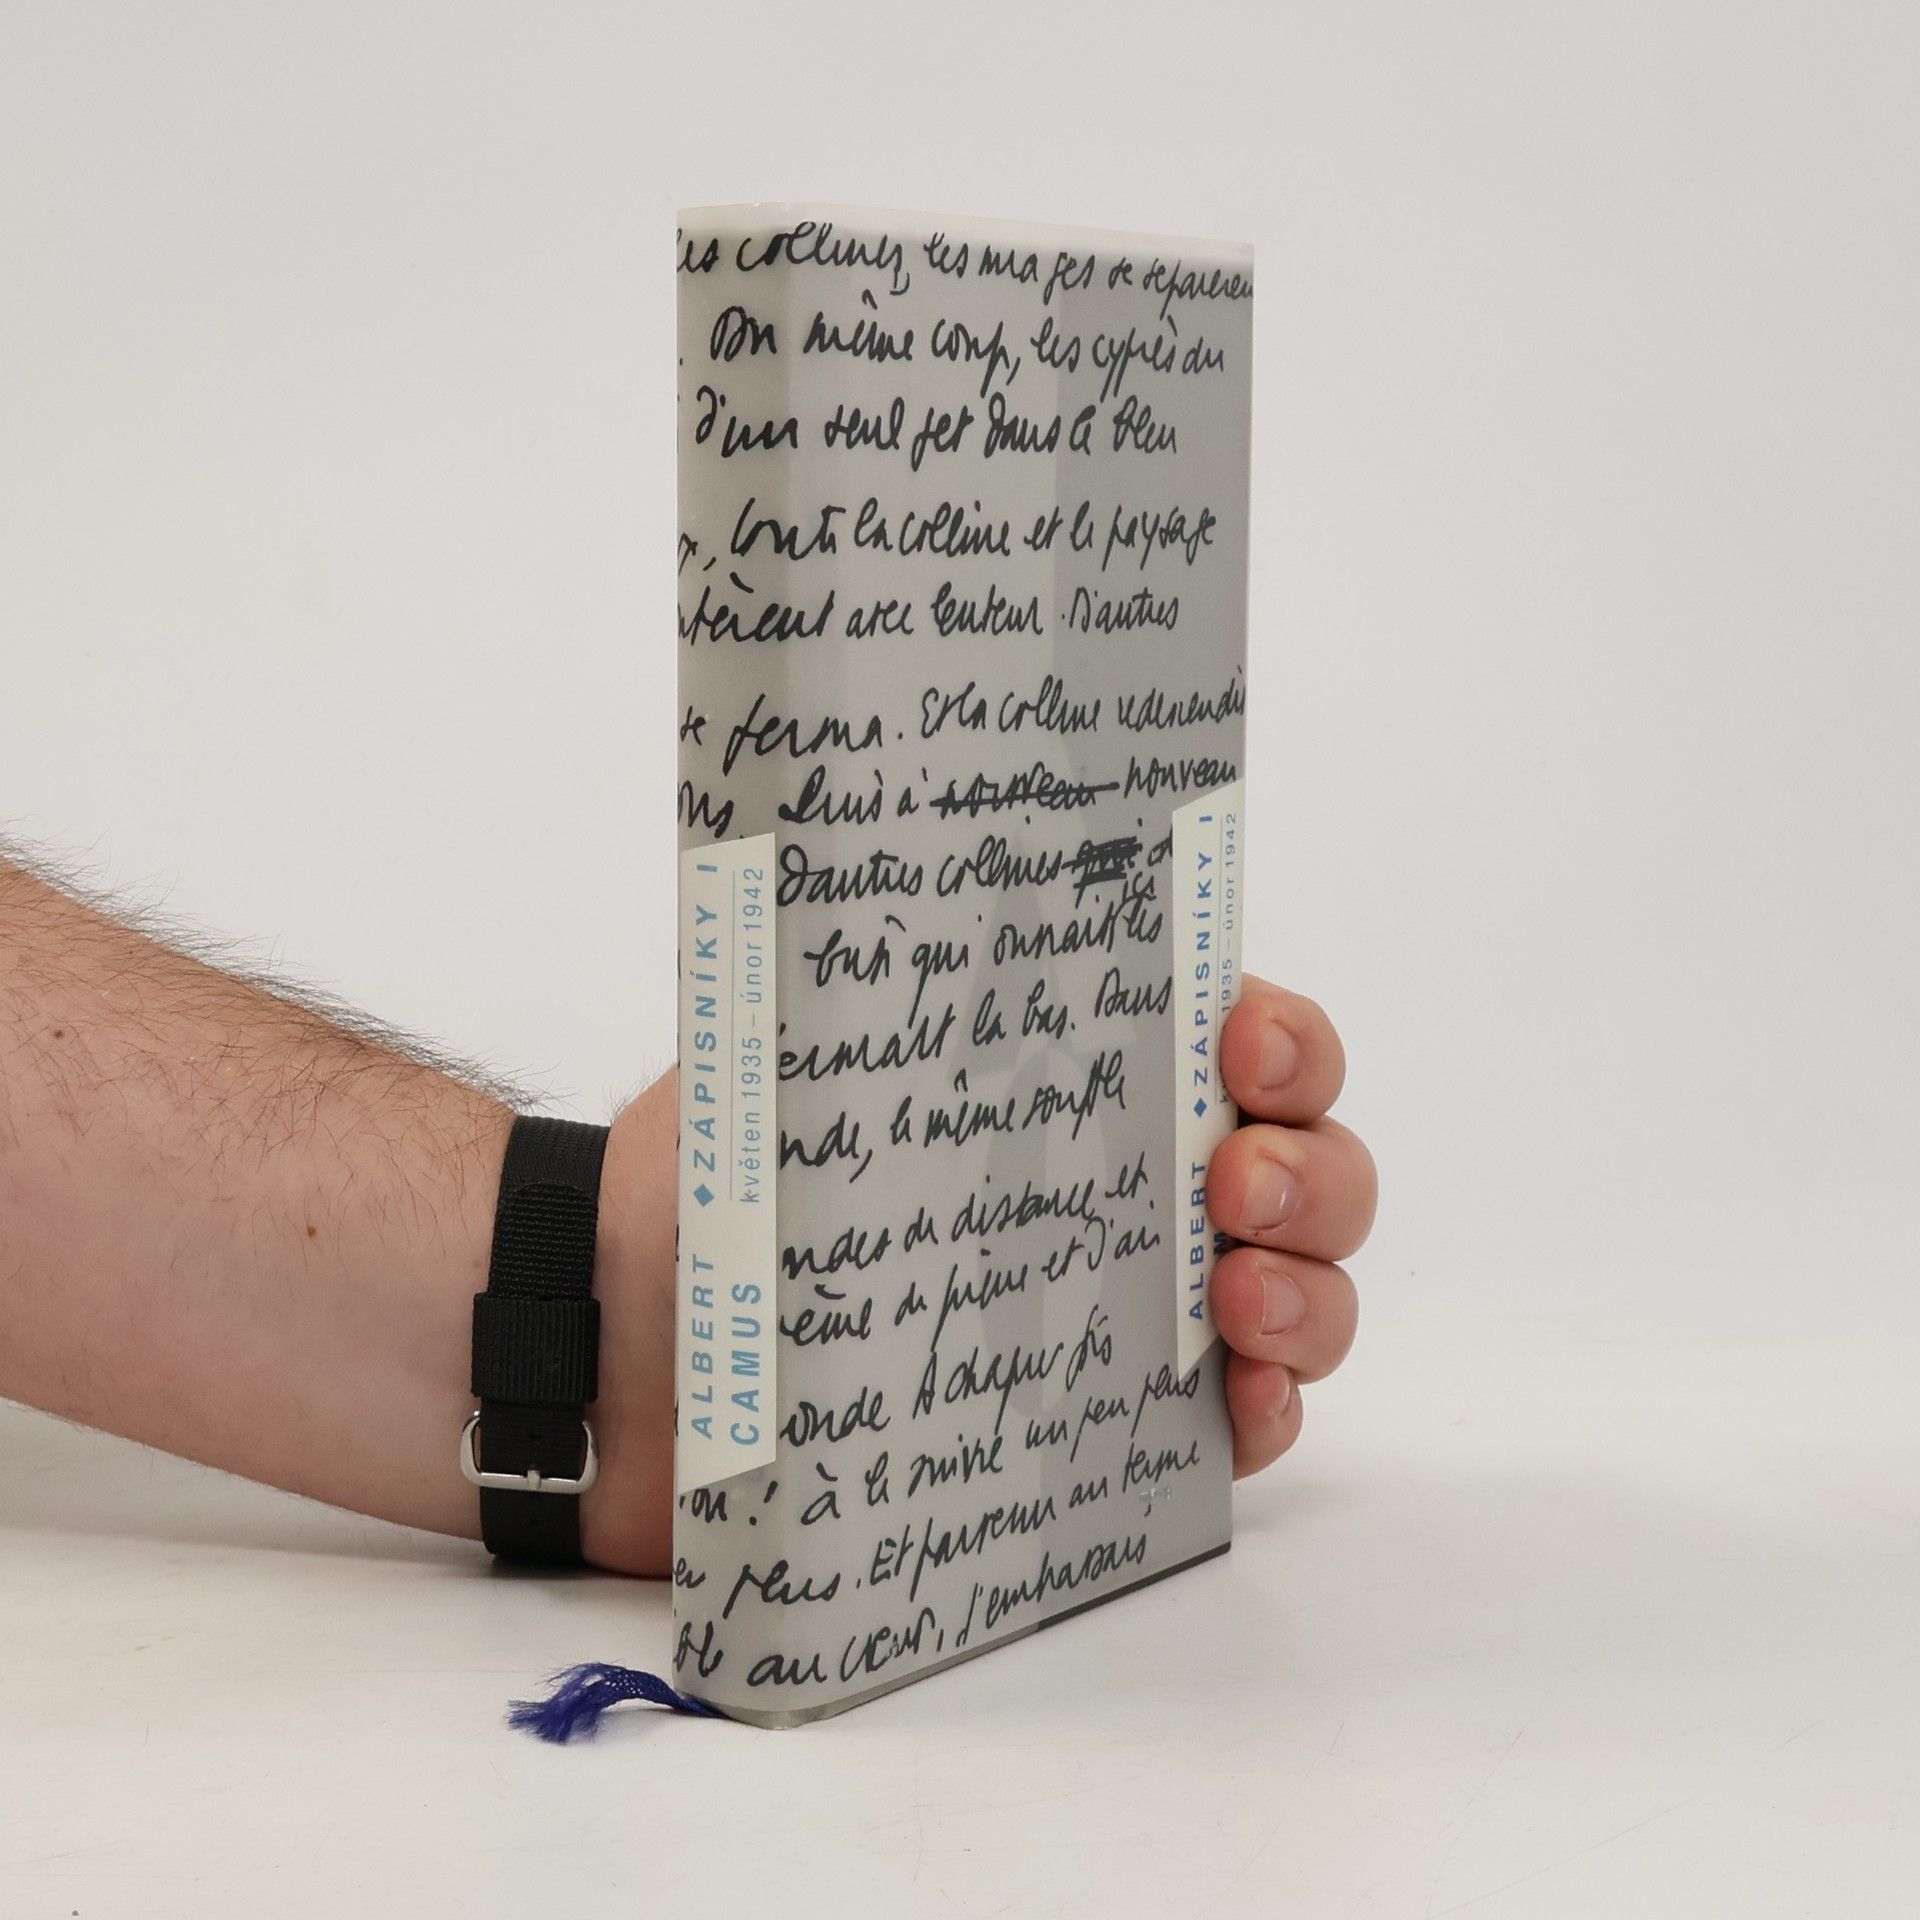 les collines, les nuages se separeren
. Du même coup, les cyprès du
d'un seul jet dans le bleu
, toute la colline et le paysage
ntèrent avec lenteur. D'autres
se ferma. Et la colline redescendit
ons. Puis à nouveau nouveau
D'autres collines qui
ici
qui connait les
là bas. Dans
nde, le même souffle
ondes de distance et
ème de pierre et d'air
onde A chaque fois
on! à le suivre un peu plus
plus. Et parvenu au terme
au cœur, j'embrassais
ALBERT ◆ ZÁPISNÍKY I
CAMUS květen 1935 – únor 1942
ALBERT ◆ ZÁPISNÍKY I
M 1935 – únor 1942